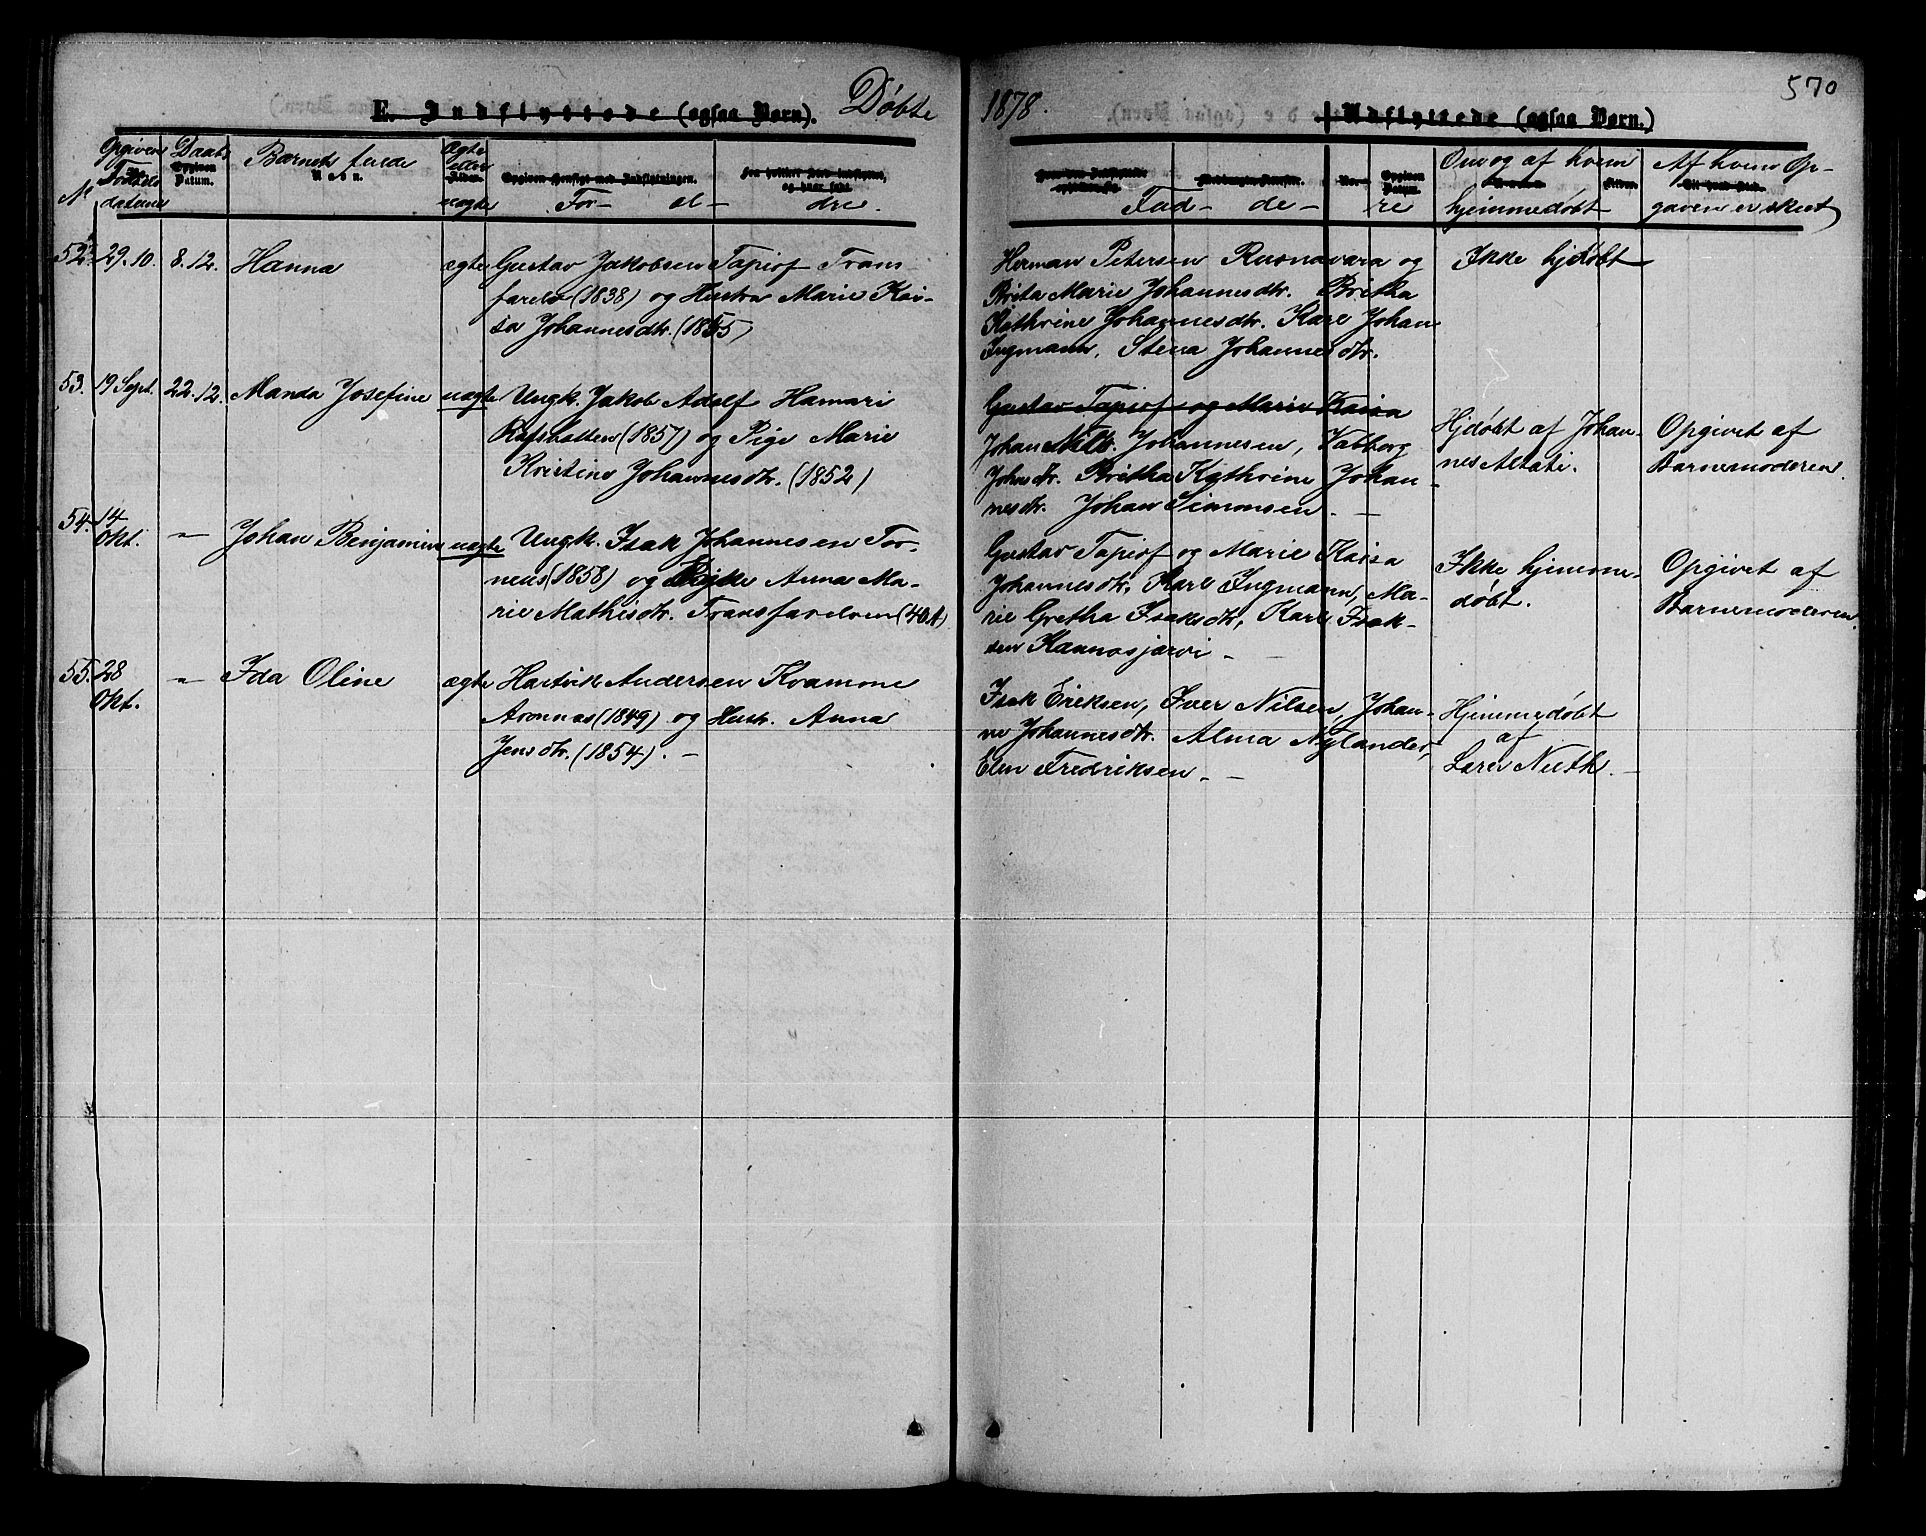 570
E. Indflyttede (ogsaa Børn). Døbte 1878. Udflyttede (ogsaa Børn.)
No Opgiven Fødselsdatum Daabs Datum. Barnets fulde Navn. Ægte eller uægte For- æl- dre. Fad- de- re Om og af hvem hjemmedøbt Af hvem Op-
gaven er skeet
52. 29.10. 8.12. Hanna ægte Gustav Jakobsen Tapiof Trans-
farelv (1838) og Hustru Marie Kai-
sa Johannesdtr. (1855)
Herman Petersen Rusnavara og
Brita Marie Johannesdtr. Britha
Kathrine Johannesdtr. Karl Johan
Ingmann, Stena Johannesdtr.
Ikke hjdøbt
53. 19 Sept. 22.12. Manda Josefine uægte Ungk. Jakob Adolf Hamari
Rafsbotten (1857) og Pige Marie
Kristine Johannesdtr. (1852)
Gustav Tapiof og Marie Kaisa
Johan Nils. Johannesen, Valborg
Johsdtr. Britha Kathrine Johan-
nesdtr. Johan Simonsen. —
Hjdøbt af Johan-
nes Altati.
Opgivet af
Barnemoderen
54. 14
Okt. " Johan Benjamin uægte Ungk. Isak Johannesen Tor-
neus (1858) og Pige Anna Ma-
rie Mathisdtr. Transfarelven (40 A)
Gustav Tapiof og Marie Kaisa
Johannesdtr, Karl Ingmann, Ma-
rie Gretha Isaksdtr, Karl Isak-
sen Kaunosjærvi —
Ikke hjemme-
døbt.
Opgivet af
Barnemoderen.
55. 28
Okt. " Ida Oline ægte Hartvik Andersen Kvamme
Aronnas (1849) og Hustr. Anna
Jensdtr. (1854). —
Isak Eriksen, Iver Nilsen, Johan-
ne Johannesdtr. Alma Nylander,
Elen Fredriksen —
Hjemmedøbt
af
Lærer Nuth. —